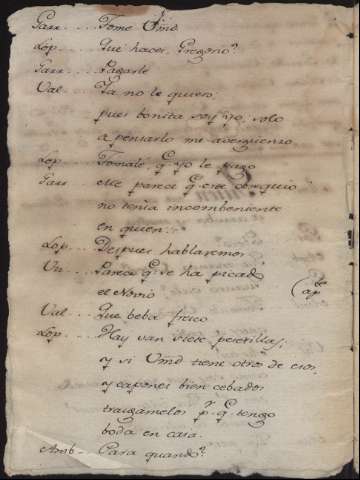 Garr... Tome Vmd
Lop... Qué haces, Gregorio?
Garr... Pagarlo
Val... Ya no le quiero;
pues bonita soy yo, solo
a pensarlo me averguenzo.
Lop... Tomalo, q.e yo le pago
Garr... me parece q.e este obsequio
no tenia incombeniente
en quien...
Lop... Despues hablaremos
Un... Parece q.e se ha picado
el Novio (ap.te
Val... Que beba fresco
Lop... Hay van siete pesetillas;
y si Vmd tiene otros de esos,
y capones bien cebados
traigamelos p.r q.e tengo
boda en casa.
Amb... Para quando?